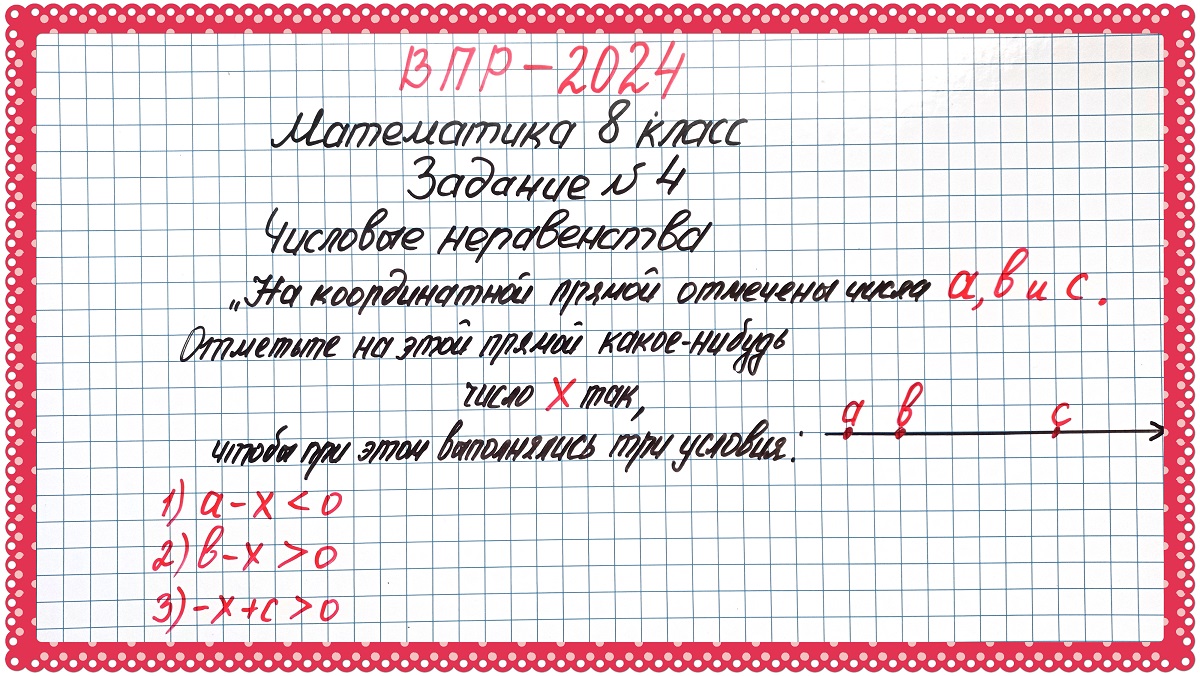 ВПР-2024
Математика 8 класс
Задание № 4
Числовые неравенства
„На координатной прямой отмечены числа а, в и с.
Отметьте на этой прямой какое-нибудь
число х так,
а в с
чтобы при этом выполнялись три условия:
1) а-х<0
2) в-х>0
3) -х+с>0